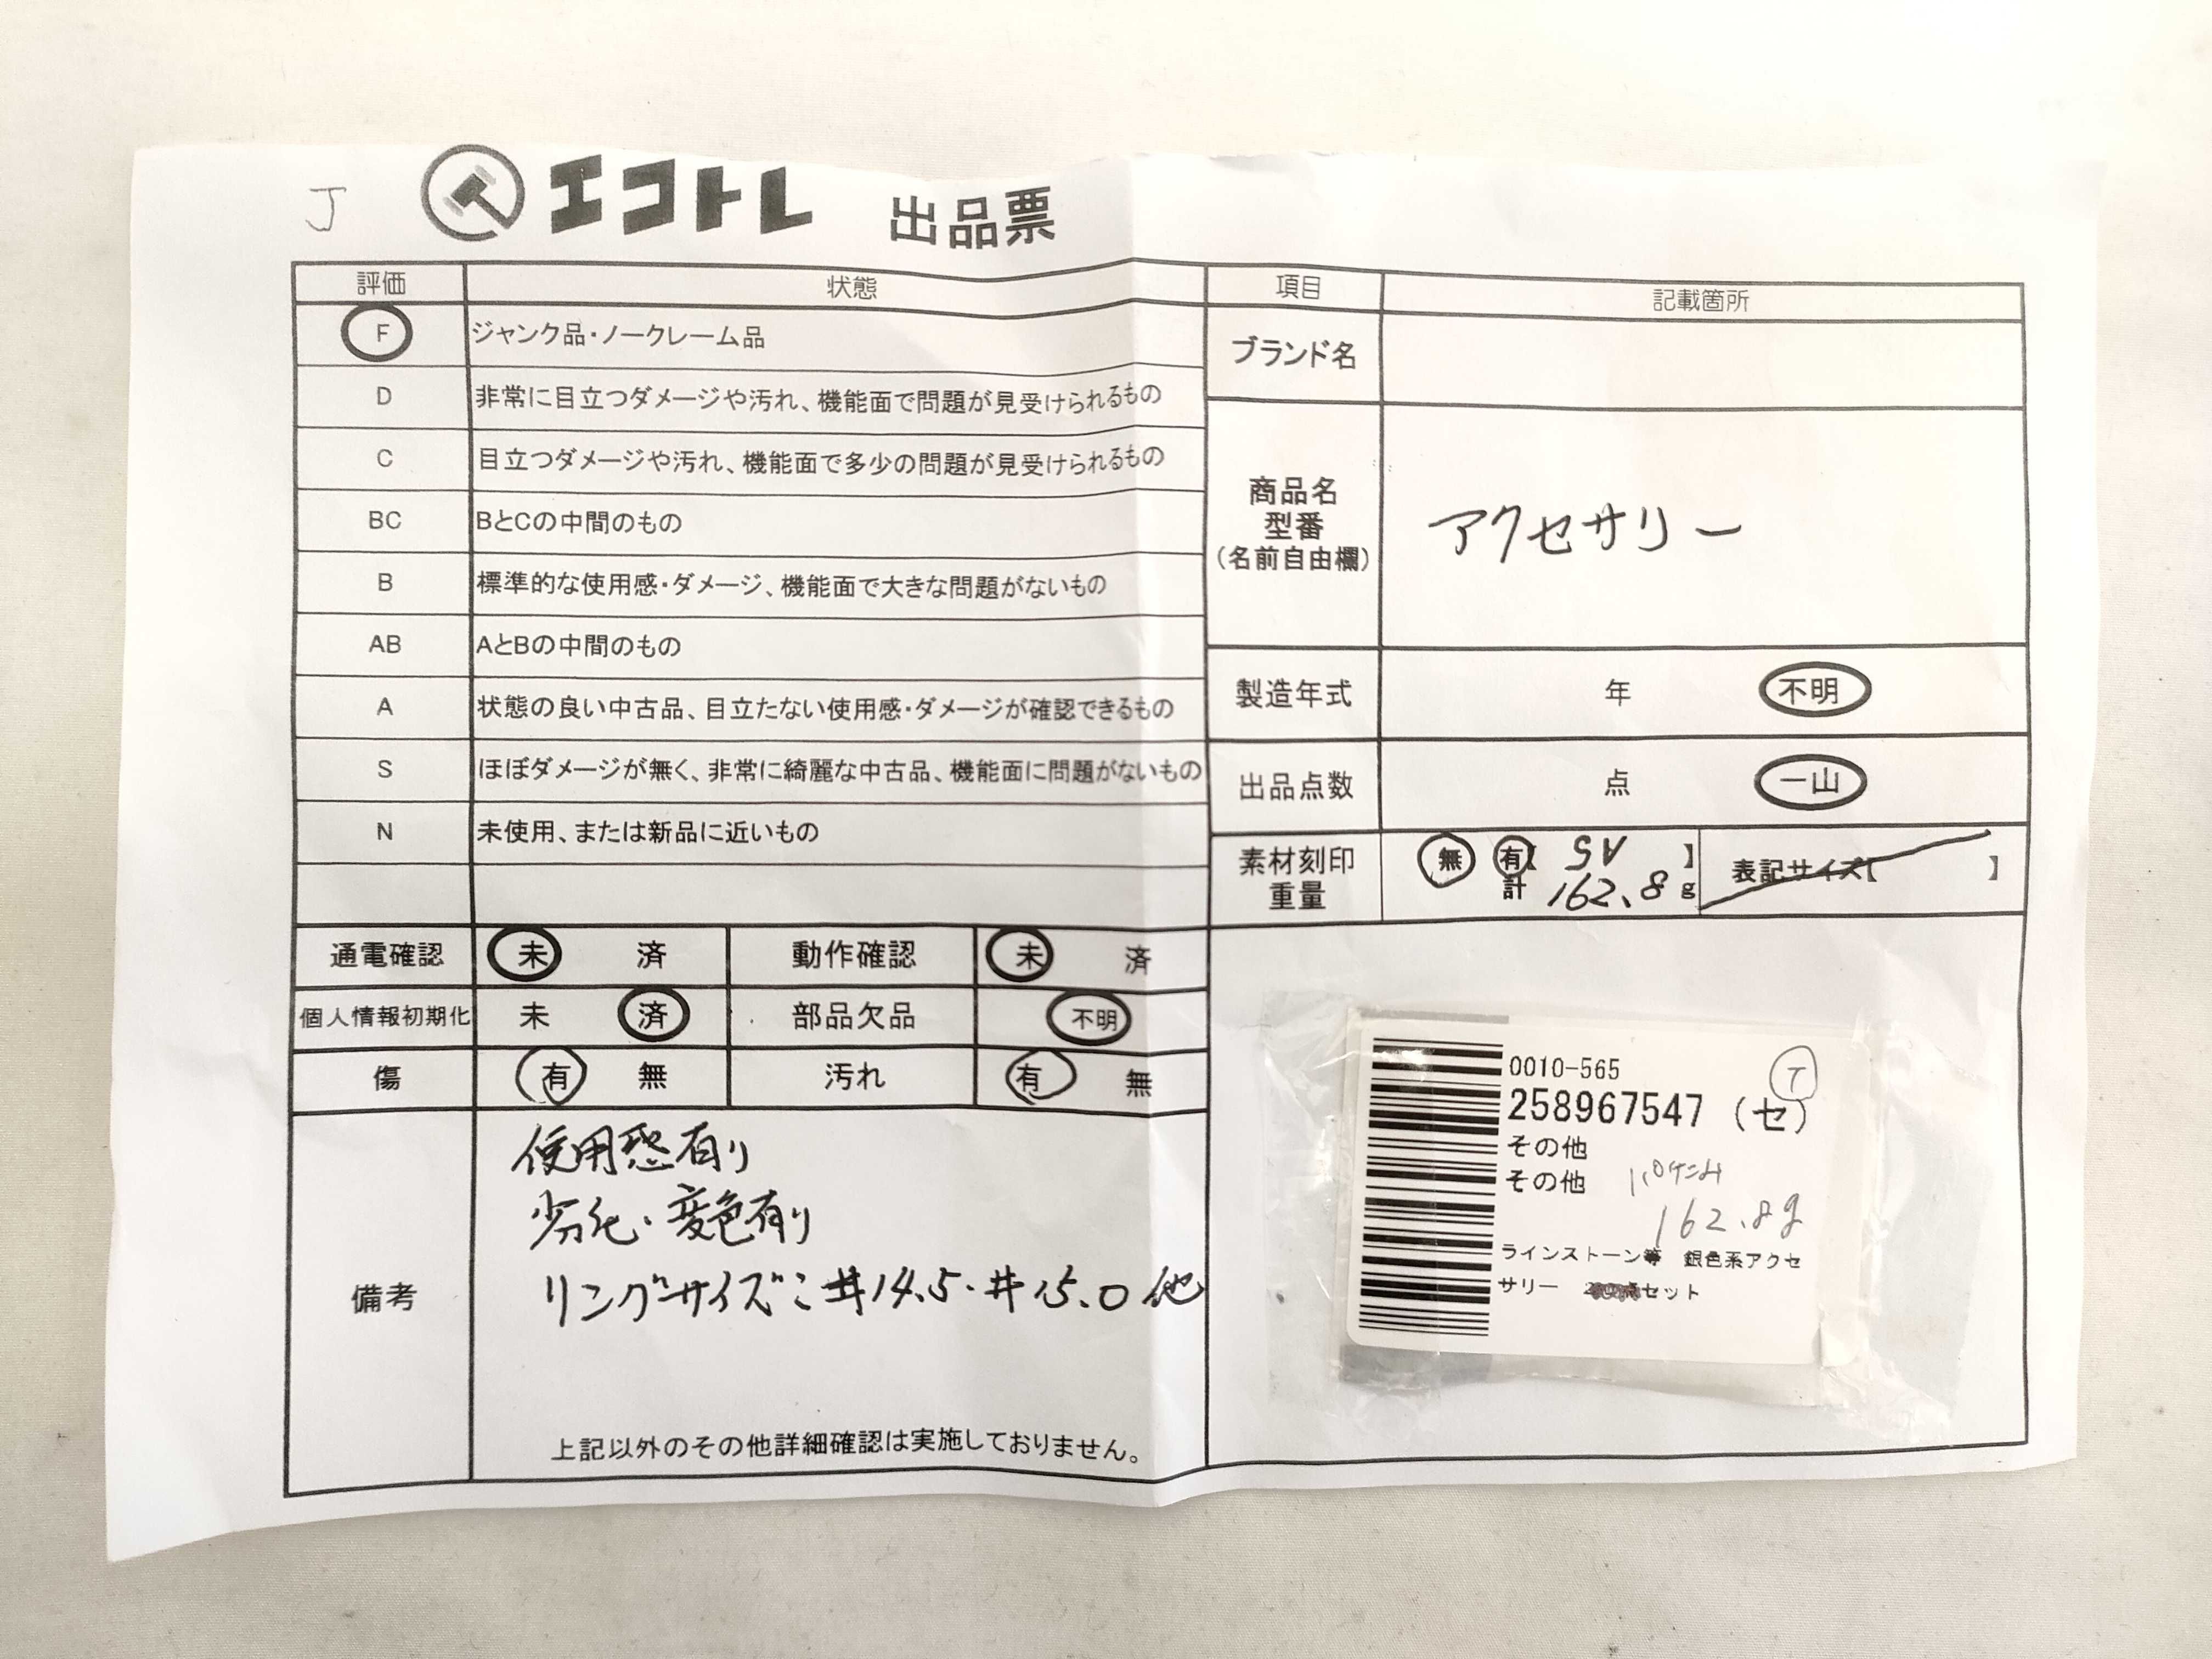 J
エコトレ 出品票
評価 状態
F ジャンク品・ノークレーム品
D 非常に目立つダメージや汚れ、機能面で問題が見受けられるもの
C 目立つダメージや汚れ、機能面で多少の問題が見受けられるもの
BC BとCの中間のもの
B 標準的な使用感・ダメージ、機能面で大きな問題がないもの
AB AとBの中間のもの
A 状態の良い中古品、目立たない使用感・ダメージが確認できるもの
S ほぼダメージが無く、非常に綺麗な中古品、機能面に問題がないもの
N 未使用、または新品に近いもの
通電確認 未 済 動作確認 未 済
個人情報初期化 未 済 部品欠品 不明
傷 有 無 汚れ 有 無
備考
使用感有り
劣化・変色有り
リングサイズ:#14.5・#15.0他
上記以外のその他詳細確認は実施しておりません。
項目 記載箇所
ブランド名
商品名
型番
(名前自由欄)
アクセサリー
製造年式 年 不明
出品点数 点 一山
素材刻印
重量
無 有【 SV 】
計 162.8 g
表記サイズ【 】
0010-565 T
258967547 (セ)
その他
その他
162.8g
ラインストーン等 銀色系アクセ
サリー セット